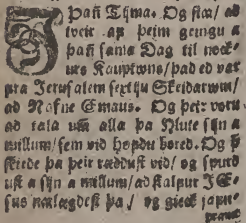 J Þan̄ Tijma. Og siæ/ ad
tveir af þeim geingu a
þan̄ sama Dag til nock-
urs Kauptwns/ þad ed var
fra Jerusalem sextiju Skeidarwm/
ad Nafne Emaus. Og þeir voru
ad tala vm̄ alla þa Hlute sijn a
millum/ sem vid høpdu bored. Og þ
skiede þa þeir ræddust vid/ og spurd
ust a sijn a millum/ ad sialfur JE-
sus nærlægdest þa/ og gieck jafn-
fram̄